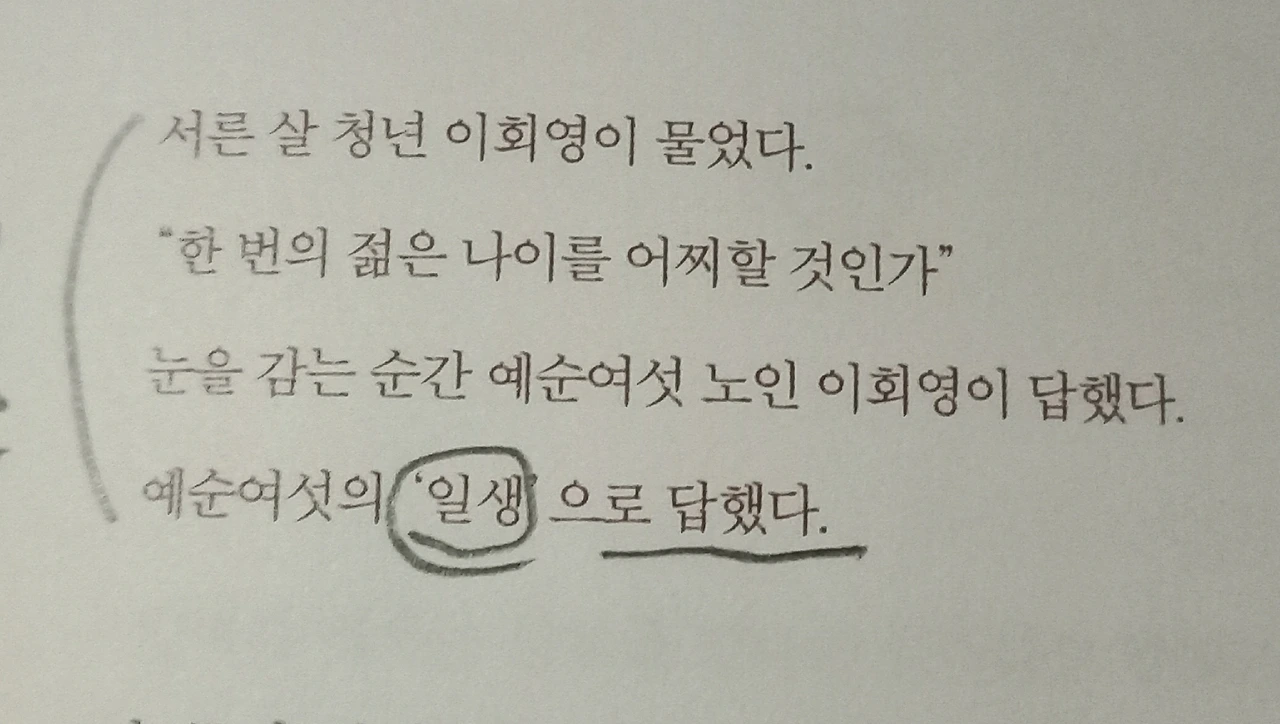 서른 살 청년 이회영이 물었다.
“한 번의 젊은 나이를 어찌할 것인가”
눈을 감는 순간 예순여섯 노인 이회영이 답했다.
예순여섯의 ‘일생’으로 답했다.